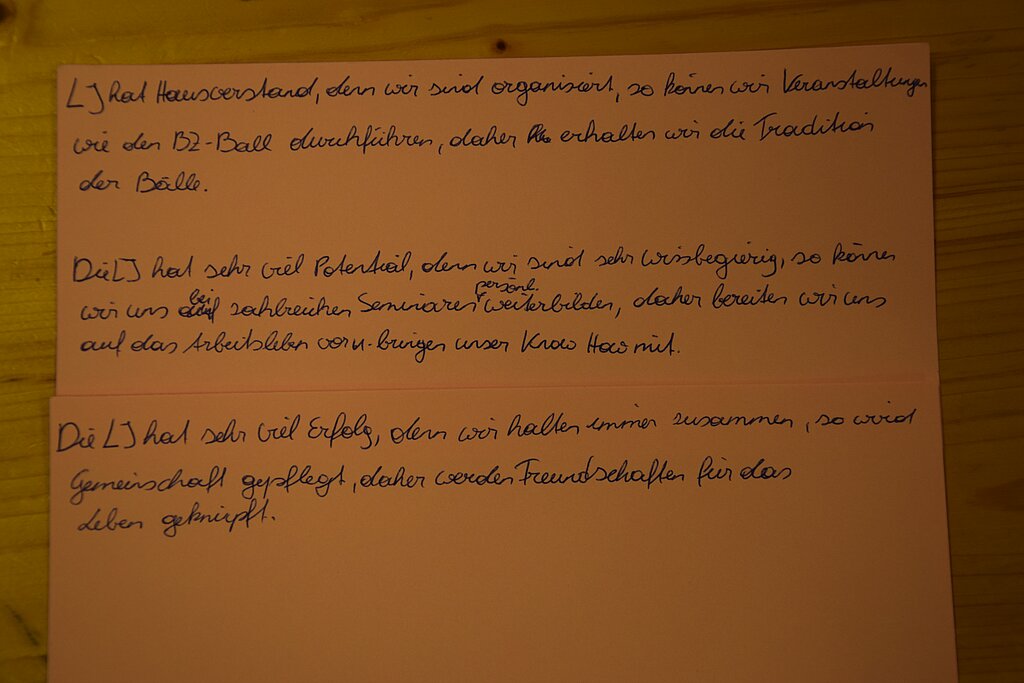 LJ hat Hausverstand, denn wir sind organisiert, so können wir Veranstaltungen
wie den BZ-Ball durchführen, daher erhalten wir die Tradition
der Bälle.
Die LJ hat sehr viel Potential, denn wir sind sehr wissbegierig, so können
wir uns bei zahlreichen Seminaren persönl. weiterbilden, daher bereiten wir uns
auf das Arbeitsleben vor u. bringen unser Know How mit.
Die LJ hat sehr viel Erfolg, denn wir halten immer zusammen, so wird
Gemeinschaft gepflegt, daher werden Freundschaften für das
Leben geknüpft.